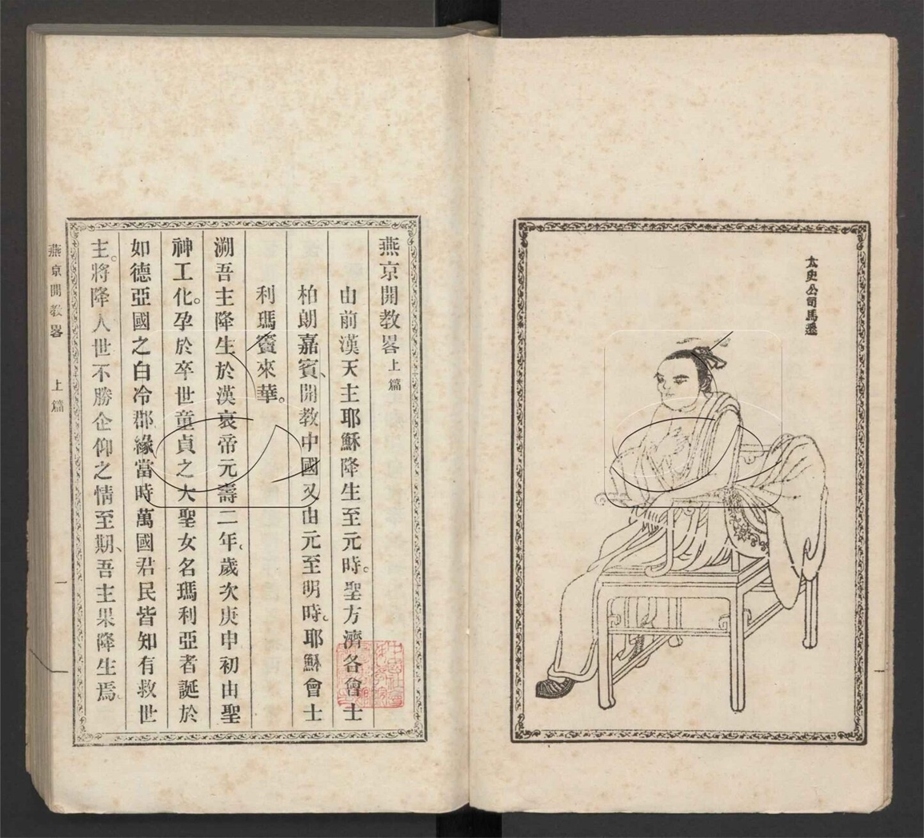 太史公司馬遷
燕京開教畧上篇
由前漢天主耶穌降生至元時。聖方濟各會士
柏朗嘉賓、開教中國又由元至明時。耶穌會士
利瑪竇來華。
溯吾主降生於漢哀帝元壽二年。歲次庚申初由聖
神工化。孕於卒世童貞之大聖女名瑪利亞者誕於
如德亞國之白冷郡緣當時萬國君民皆知有救世
主。將降人世不勝企仰之情至期、吾主果降生焉。
燕京開教畧 上篇 一